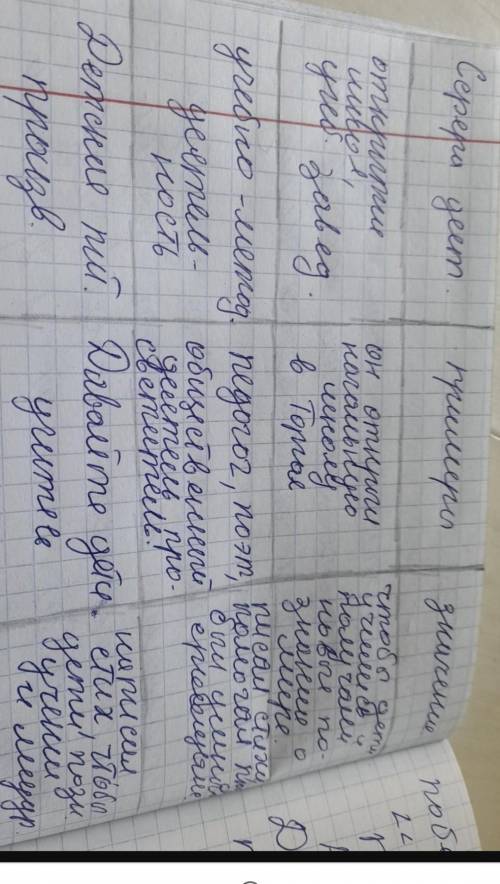 Сферы деят.
примеры
значение
открытие
школ,
учеб. завед.
он открыл
начальную
школу
в Торгае
чтобы дети
учились и
получали
новые по-
знания о
мире
учебно-метод.
деятель-
ность
педогог, поэт,
общественный
деятель про-
светитель!
писал стихи
помогал
был учит
Детские пит.
произв.
Давайте дети
учитесь
написал
стих чтобы
дети
учении
и мудр